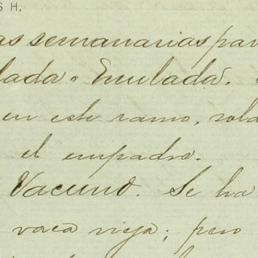 S H.
as semanarias par
lada o Emulada.
en este ramo, sola
el empadro.
Vacuno. Se ha
vaca vieja; pero